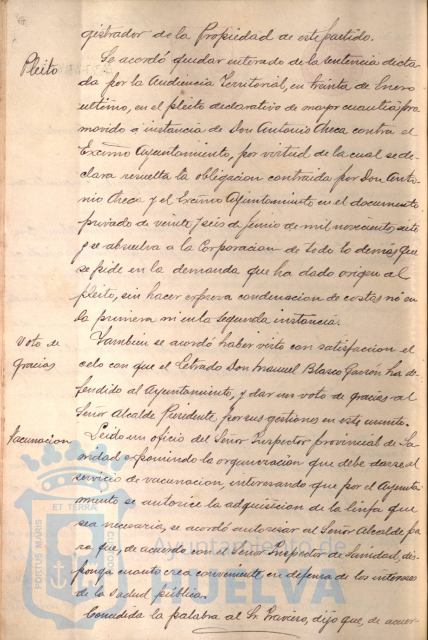 gistrador de la Propiedad de este partido.
Pleito
Se acordó quedar enterado de la sentencia dicta-
da por la Audiencia Territorial, en treinta de Enero
ultimo, en el pleito declarativo de mayor cuantia pro-
movido a instancia de Don Antonio Checa contra el
Excmo Ayuntamiento, por virtud de la cual se de-
clara resuelta la obligacion contraida por Don Anto-
nio Checa y el Excmo Ayuntamiento en el documento
privado de veinte y seis de Junio de mil novecientos siete
y se absuelve a la Corporacion de todo lo demás que
se pide en la demanda que ha dado origen al
pleito, sin hacer expresa condenacion de costas ni en
la primera ni en la segunda instancia.
Voto de
gracias
Tambien se acordó haber visto con satisfaccion el
celo con que el Letrado Don Manuel Blasco Garzón ha de-
fendido al Ayuntamiento, y dar un voto de gracias al
Señor Alcalde Presidente por sus gestiones en este asunto.
Vacunacion
Leido un oficio del Señor Inspector provincial de Sa-
nidad exponiendo la organizacion que debe darse al
servicio de vacunacion, interesando que por el Ayunta-
miento se autorice la adquisicion de la linfa que
sea necesaria, se acordó autorizar al Señor Alcalde pa-
ra que, de acuerdo con el Señor Inspector de Sanidad, dis-
ponga cuanto crea conveniente en defensa de los intereses
de la salud pública.
Concedida la palabra al Sr. Traviero, dijo que, de acuer-
PORTUS MARIS
ET TERRÆ
CUSTODIA
Ayuntamiento de
HUELVA